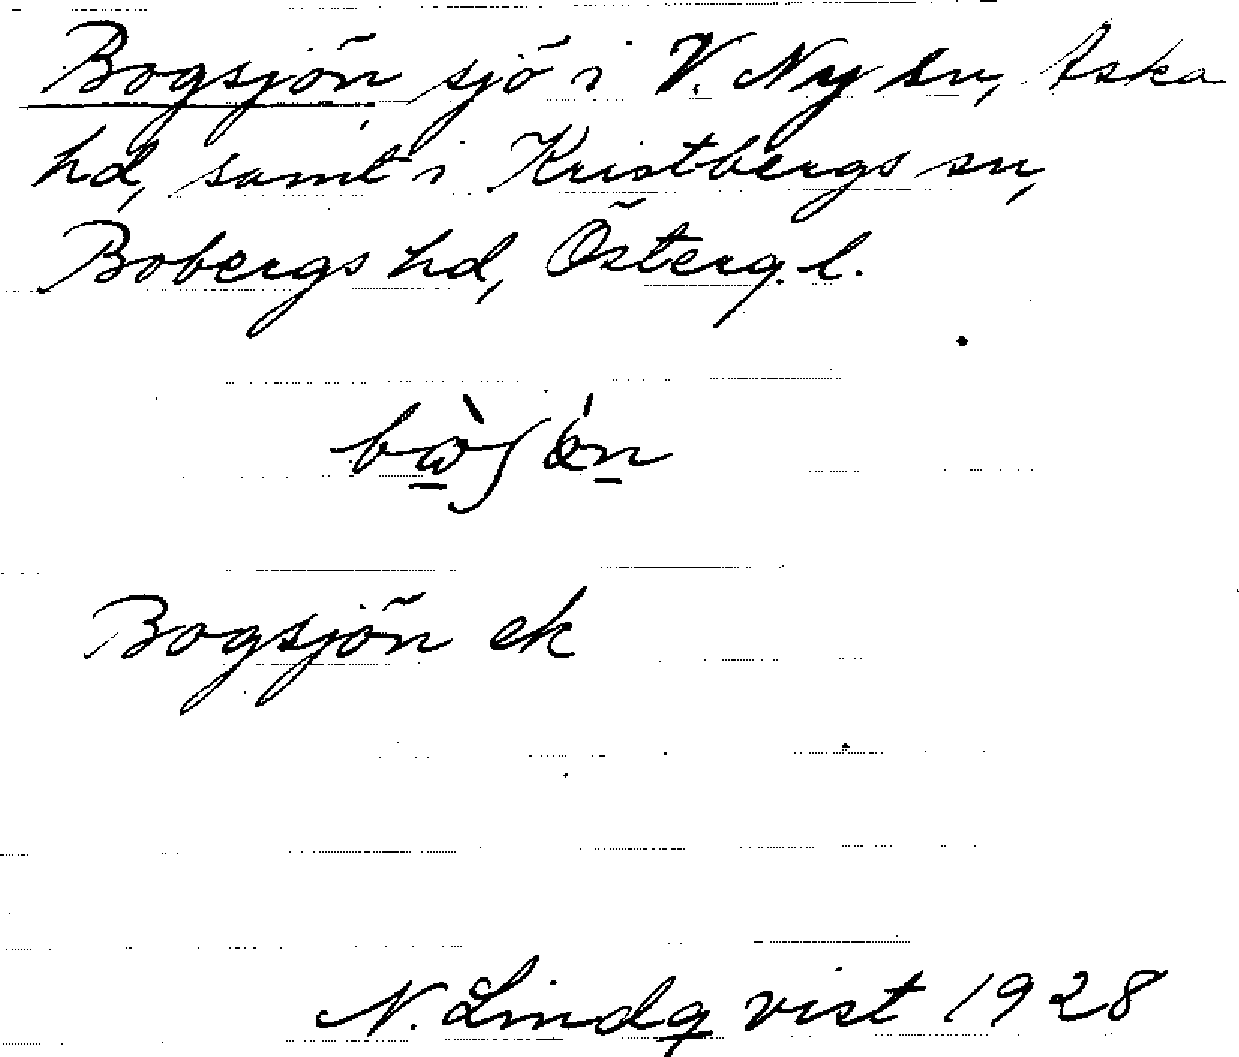 Bogsjön sjö i V. Ny sn, Aska
hd, samt i Kristbergs sn,
Bobergs hd, Österg. l.
Bogsjön ek
N. Lindqvist 1928